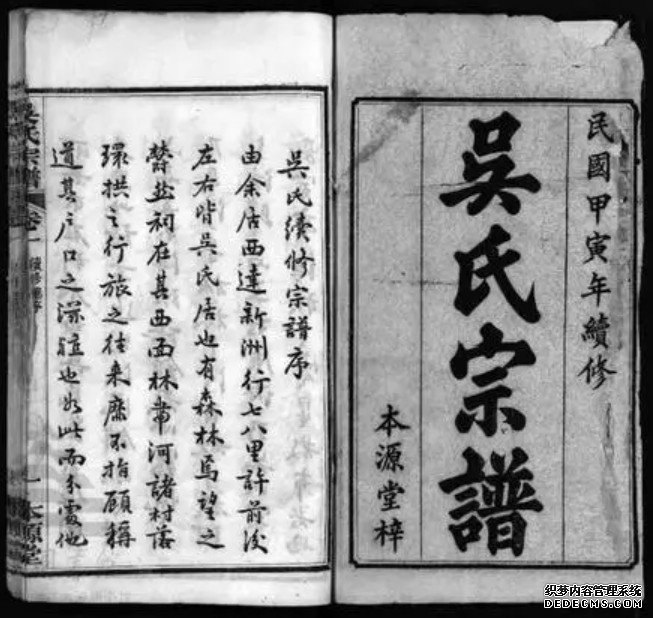 民國甲寅年續修
吳氏宗譜
本源堂梓
吳氏續修宗譜序
由余居西達新洲行七八里許前後
左右皆吳氏居也有森林焉望之
祠在其西面林帶河諸村落
環拱之行旅之往来靡不指顧稱
道其户口之也如此而分處他
吳氏宗譜
卷一
一
本源堂
织梦内容管理系统
DEDECMS.COM